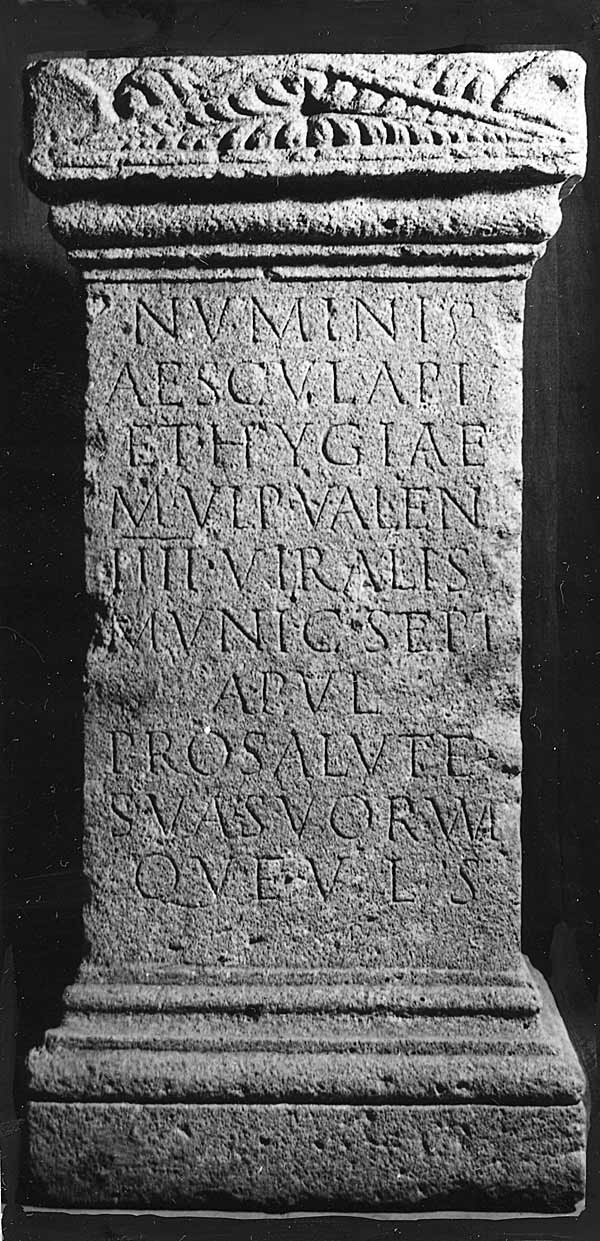 NVMINIS
AESCVLAPI
ET·HYGIAE
M·VLP·VALEN
IIII·VIRALIS
MVNIC·SEPT
APVL
PRO SALVTE
SVA SVORVM
QVE·V·L·S